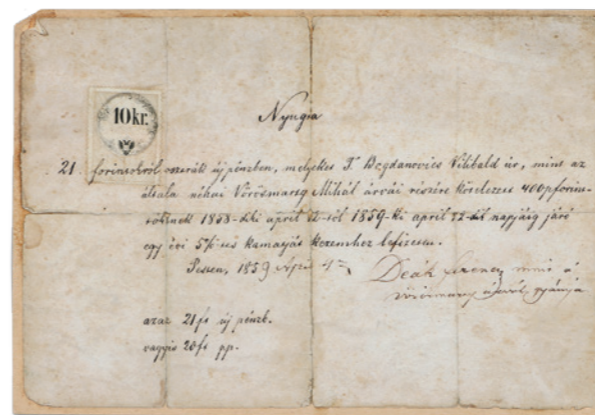 10 kr.
Nyugta
21 forintokról osztrák új pénzben, melyeket T. Bogdanovics Vilibald úr, mint az
általa néhai Vörösmarty Mihál árvái részére kötelezett 400 pforin-
toknak 1858-diki april 12-től 1859-ki april 12-dik napjáig járó
egy évi 5%-es kamatját kezemhez befizetett.
Pesten, 1859 April 4
Deák Ferenc, mint a
Vörösmarty árvák gyámja
azaz 21 ft új pénzb.
vagyis 20 ft pp.